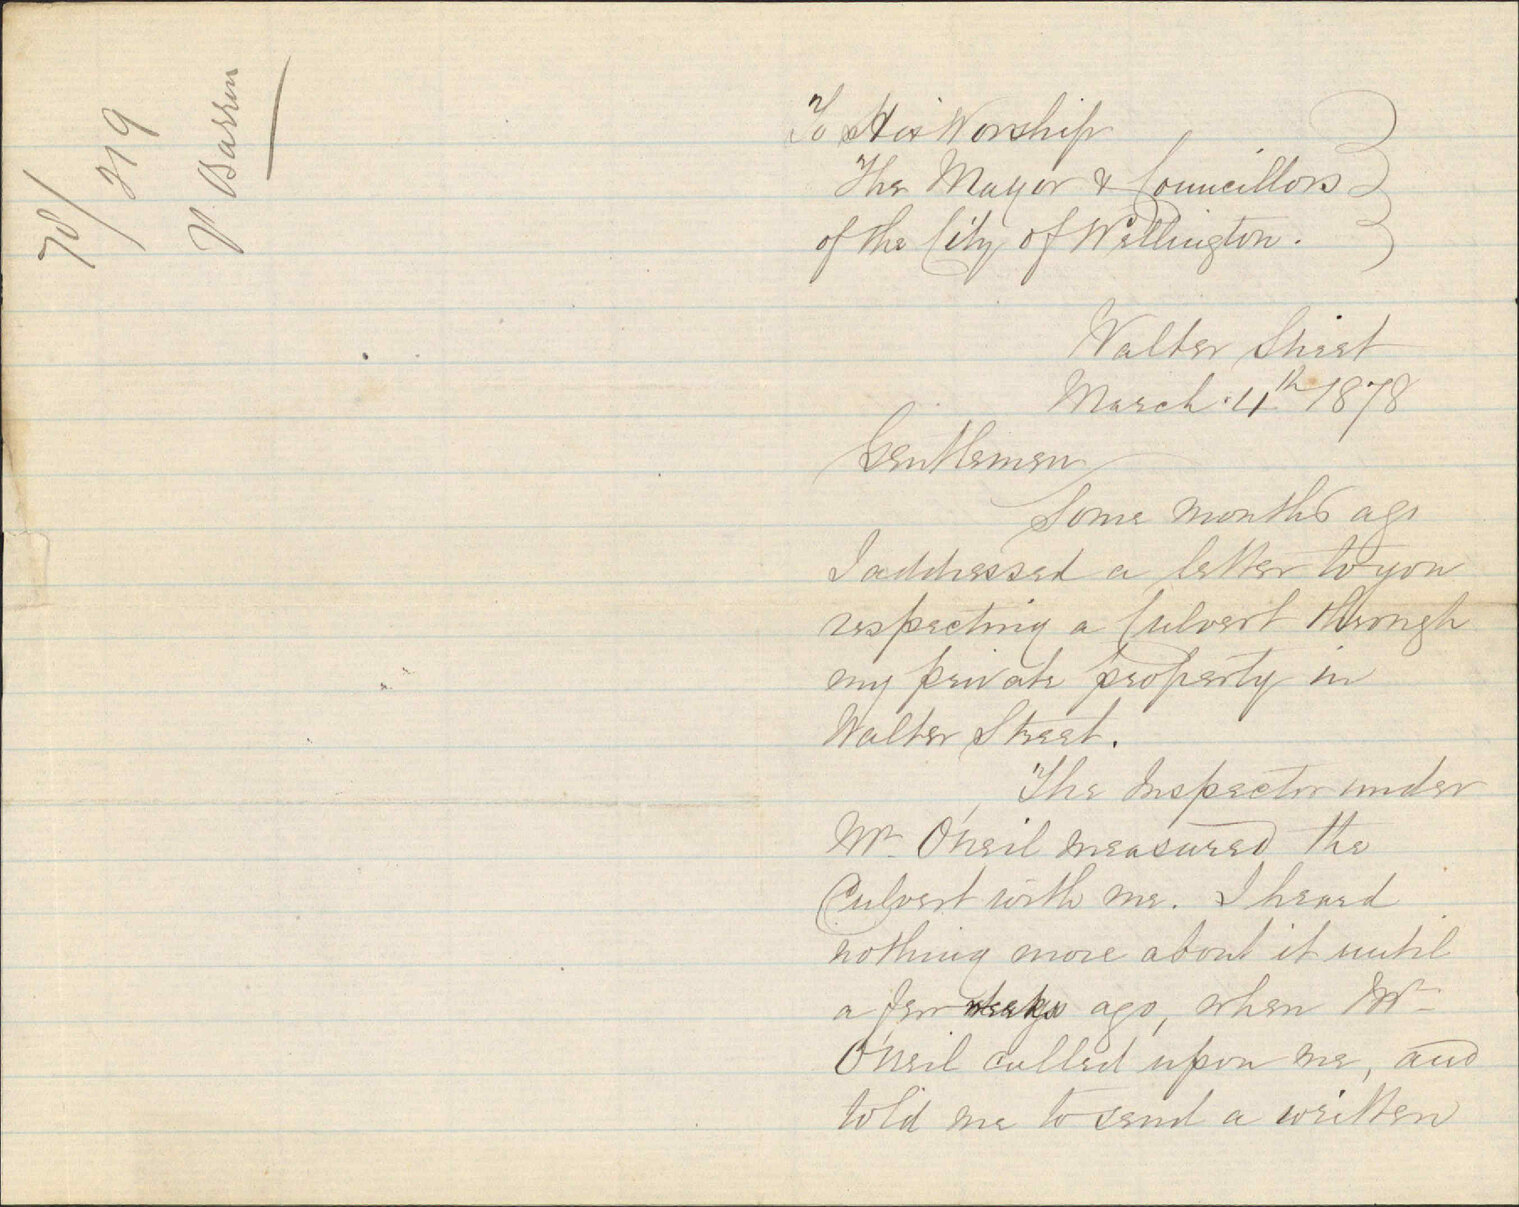 78/
219
W Barren
To His Worship
The Mayor & Councillors
of the City of Wellington.
Walter Street
March 4th 1878
Gentlemen
Some months ago
I addressed a letter to you
respecting a Culvert through
my private property in
Walter Street.
The Inspector under
Mr. O'Neil measured the
Culvert with me. I heard
nothing more about it until
a few weeks ago, when Mr
O'Neil called upon me, and
told me to send a written